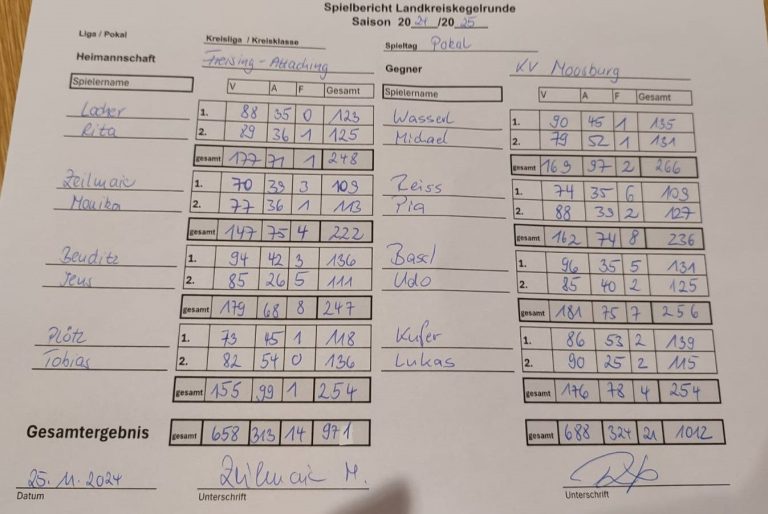 Spielbericht Landkreiskegelrunde
Saison 2024/2025
Liga / Pokal Kreisliga / Kreisklasse Spieltag Pokal
Heimannschaft Freising - Attaching Gegner KV Moosburg
Spielername V A F Gesamt Spielername V A F Gesamt
Locher 1. 88 35 0 123 Wasserl 1. 90 45 1 135
Rita 2. 89 36 1 125 Michael 2. 79 52 1 131
gesamt 177 71 1 248 gesamt 169 97 2 266
Zeilmair 1. 70 39 3 109 Zeiss 1. 74 35 6 109
Monika 2. 77 36 1 113 Pia 2. 88 39 2 127
gesamt 147 75 4 222 gesamt 162 74 8 236
Benditz 1. 94 42 3 136 Basel 1. 96 35 5 131
Jens 2. 85 26 5 111 Udo 2. 85 40 2 125
gesamt 179 68 8 247 gesamt 181 75 7 256
Plötz 1. 73 45 1 118 Kufer 1. 86 53 2 139
Tobias 2. 82 54 0 136 Lukas 2. 90 25 2 115
gesamt 155 99 1 254 gesamt 176 78 4 254
Gesamtergebnis gesamt 658 313 14 971 gesamt 688 324 21 1012
25.11.2024 Zeilmair M.
Datum Unterschrift Unterschrift